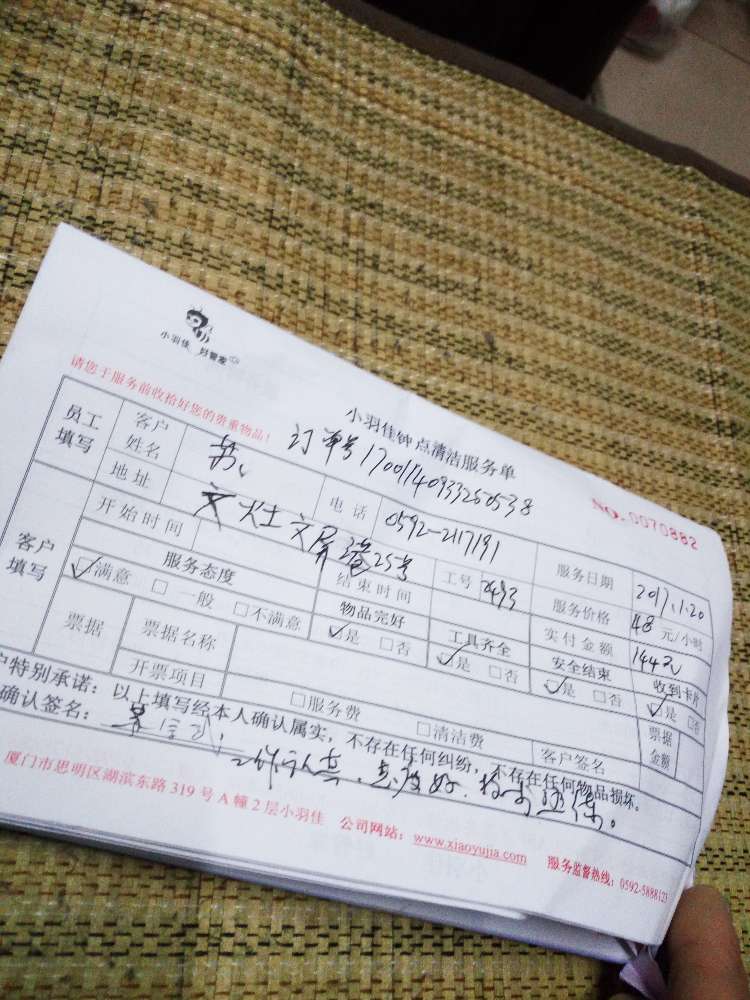 小羽佳 好管家
请您于服务前收拾好您的贵重物品！
小羽佳钟点清洁服务单
NO. 0070882
订单号
员工填写 客户姓名 苏 电话 0592-2117191 服务日期 2017.1.20
地址 文灶文屏巷25号 工号 服务价格 48 元/小时
客户填写 开始时间 结束时间 实付金额 144元
服务态度 物品完好 工具齐全 安全结束 收到卡片
☑满意 □一般 □不满意 ☑是 □否 ☑是 □否 ☑是 □否 ☑是 □否
票据 票据名称 票据金额
开票项目 □服务费 □清洁费 客户签名
户特别承诺：以上填写经本人确认属实，不存在任何纠纷，不存在任何物品损坏。
确认签名： 工作认真，态度好，
厦门市思明区湖滨东路 319 号 A 幢 2 层小羽佳 公司网站：www.xiaoyujia.com 服务监督热线：0592-5888123